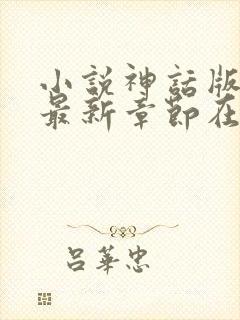 小說神話版
最新章節在
呂華忠